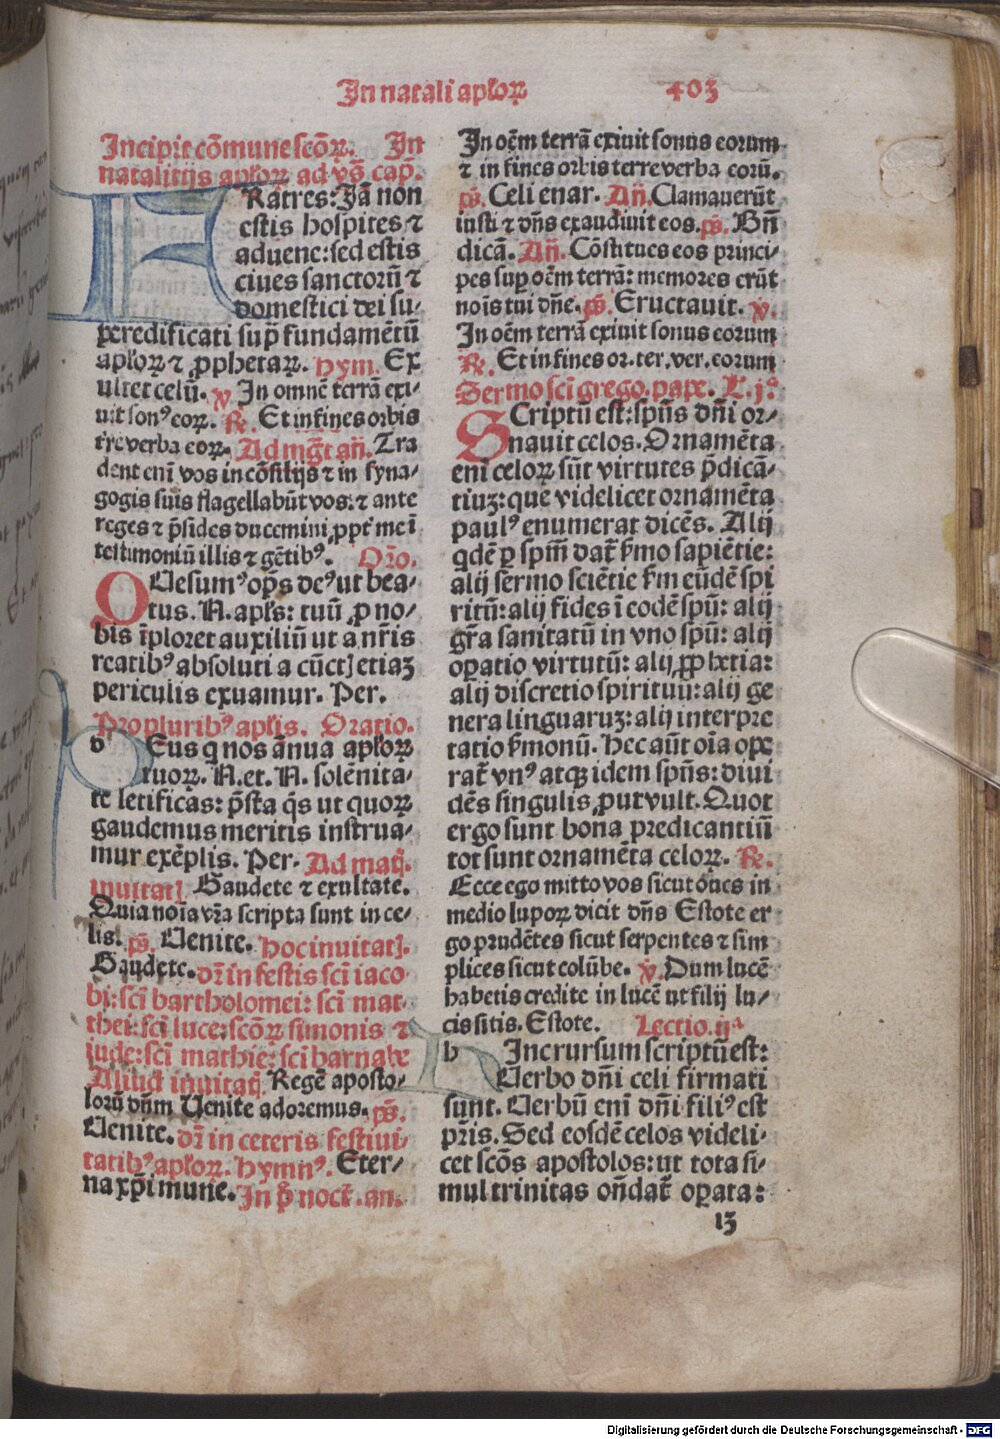 In natali aploꝝ 403
Incipit cōmune scōꝝ. In
natalitijs aploꝝ ad vꝰ̄ cap̄.
FRatres: Jā non
estis hospites ⁊
aduene: sed estis
ciues sanctorū ⁊
domestici dei su-
peredificati suꝑ fundamētū
aploꝝ ⁊ ꝓphetaꝝ. hym. Ex
ultet celū. ꝟ. In omnē terrā exi-
uit sonꝰ eoꝝ. ℟. Et in fines orbis
tr̄e verba eoꝝ. Ad mg̅t an̄. Tra
dent eni vos in cōsilijs ⁊ in syna-
gogis suis flagellabūt vos: ⁊ ante
reges ⁊ p̄sides ducemini ꝓpt̄ me ī
testimoniū illis ⁊ gētibꝰ. Or̄o.
QUesumꝰ op̄s deꝰ ut bea-
tus. N. apl̄s: tuū ꝓ no-
bis īploret auxiliū ut a nr̄is
reatibꝰ absoluti a cūctꝭ etiaꝫ
periculis exuamur. Per.
Pro pluribꝰ apl̄is. Oratio.
DEus q nos ānua aploꝝ
tuoꝝ. N. et. N. solēnita-
te letificas: p̄sta q̄s ut quoꝝ
gaudemus meritis instrua-
mur exēplis. Per. Ad matꝗ̄.
inuitatꝭ. Gaudete ⁊ exultate.
Quia noīa vr̄a scripta sunt in ce-
lis. p̄s. Uenite. Hoc inuitatꝭ.
Gaudete. dr̄ in festis sc̄i iaco
bi: sc̄i bartholomei: sc̄i mat-
thei: sc̄i luce: scōꝝ simonis ⁊
iude: sc̄i mathie: sc̄i barnabe
Aliud inuitaꝗ̄ Regē aposto-
lorū dn̄m Uenite adoremus. p̄s.
Uenite. dr̄ in ceteris festiui-
tatibꝰ aploꝝ. Hymnꝰ. Eter-
na xp̄i mune. In p̄ noct̄. an.
In oēm terrā exiuit sonus eorum
⁊ in fines orbis terre verba eorū.
p̄s. Celi enar. An̄. Clamauerūt
iusti ⁊ dn̄s exaudiuit eos. p̄s. Bn̄
dicā. An̄. Cōstitues eos princi-
pes suꝑ oēm terrā: memores erūt
nois tui dn̄e. p̄s. Eructauit. ꝟ.
In oēm terrā exiuit sonus eorum
℟. Et in fines or. ter. ver. eorum
Sermo sc̄i grego. pape. L. jᵃ
SCriptū est: spūs dn̄i or-
nauit celos. Ornamēta
eni celoꝝ sūt virtutes p̄dicā-
tiuꝫ: que videlicet ornamēta
paulꝰ enumerat dicēs. Alij
qdē ꝑ spm̄ dat̄ ẜmo sapiētie:
alij sermo sciētie ẜm eūdē spi
ritū: alij fides ī eodē spū: alij
gr̄a sanitatū in vno spū: alij
oꝑatio virtutū: alij ꝓphetia:
alij discretio spirituū: alij ge
nera linguaruꝫ: alij interpre
tatio ẜmonū. Hec aūt oīa ope
rat̄ vnꝰ atqꝫ idem spūs: diui
dēs singulis ꝓut vult. Quot
ergo sunt bona predicantiū
tot sunt ornamēta celoꝝ. ℟.
Ecce ego mitto vos sicut oues in
medio lupoꝝ dicit dn̄s Estote er
go prudētes sicut serpentes ⁊ sim
plices sicut colūbe. ꝟ. Dum lucē
habetis credite in lucē ut filij lu-
cis sitis. Estote. Lectio. ijᵃ
HInc rursum scriptū est:
Uerbo dn̄i celi firmati
sunt. Uerbū eni dn̄i filiꝰ est
pr̄is. Sed eosdē celos videli-
cet scōs apostolos: ut tota si-
mul trinitas on̄dat̄ oꝑata:
13
Digitalisierung gefördert durch die Deutsche Forschungsgemeinschaft - DFG